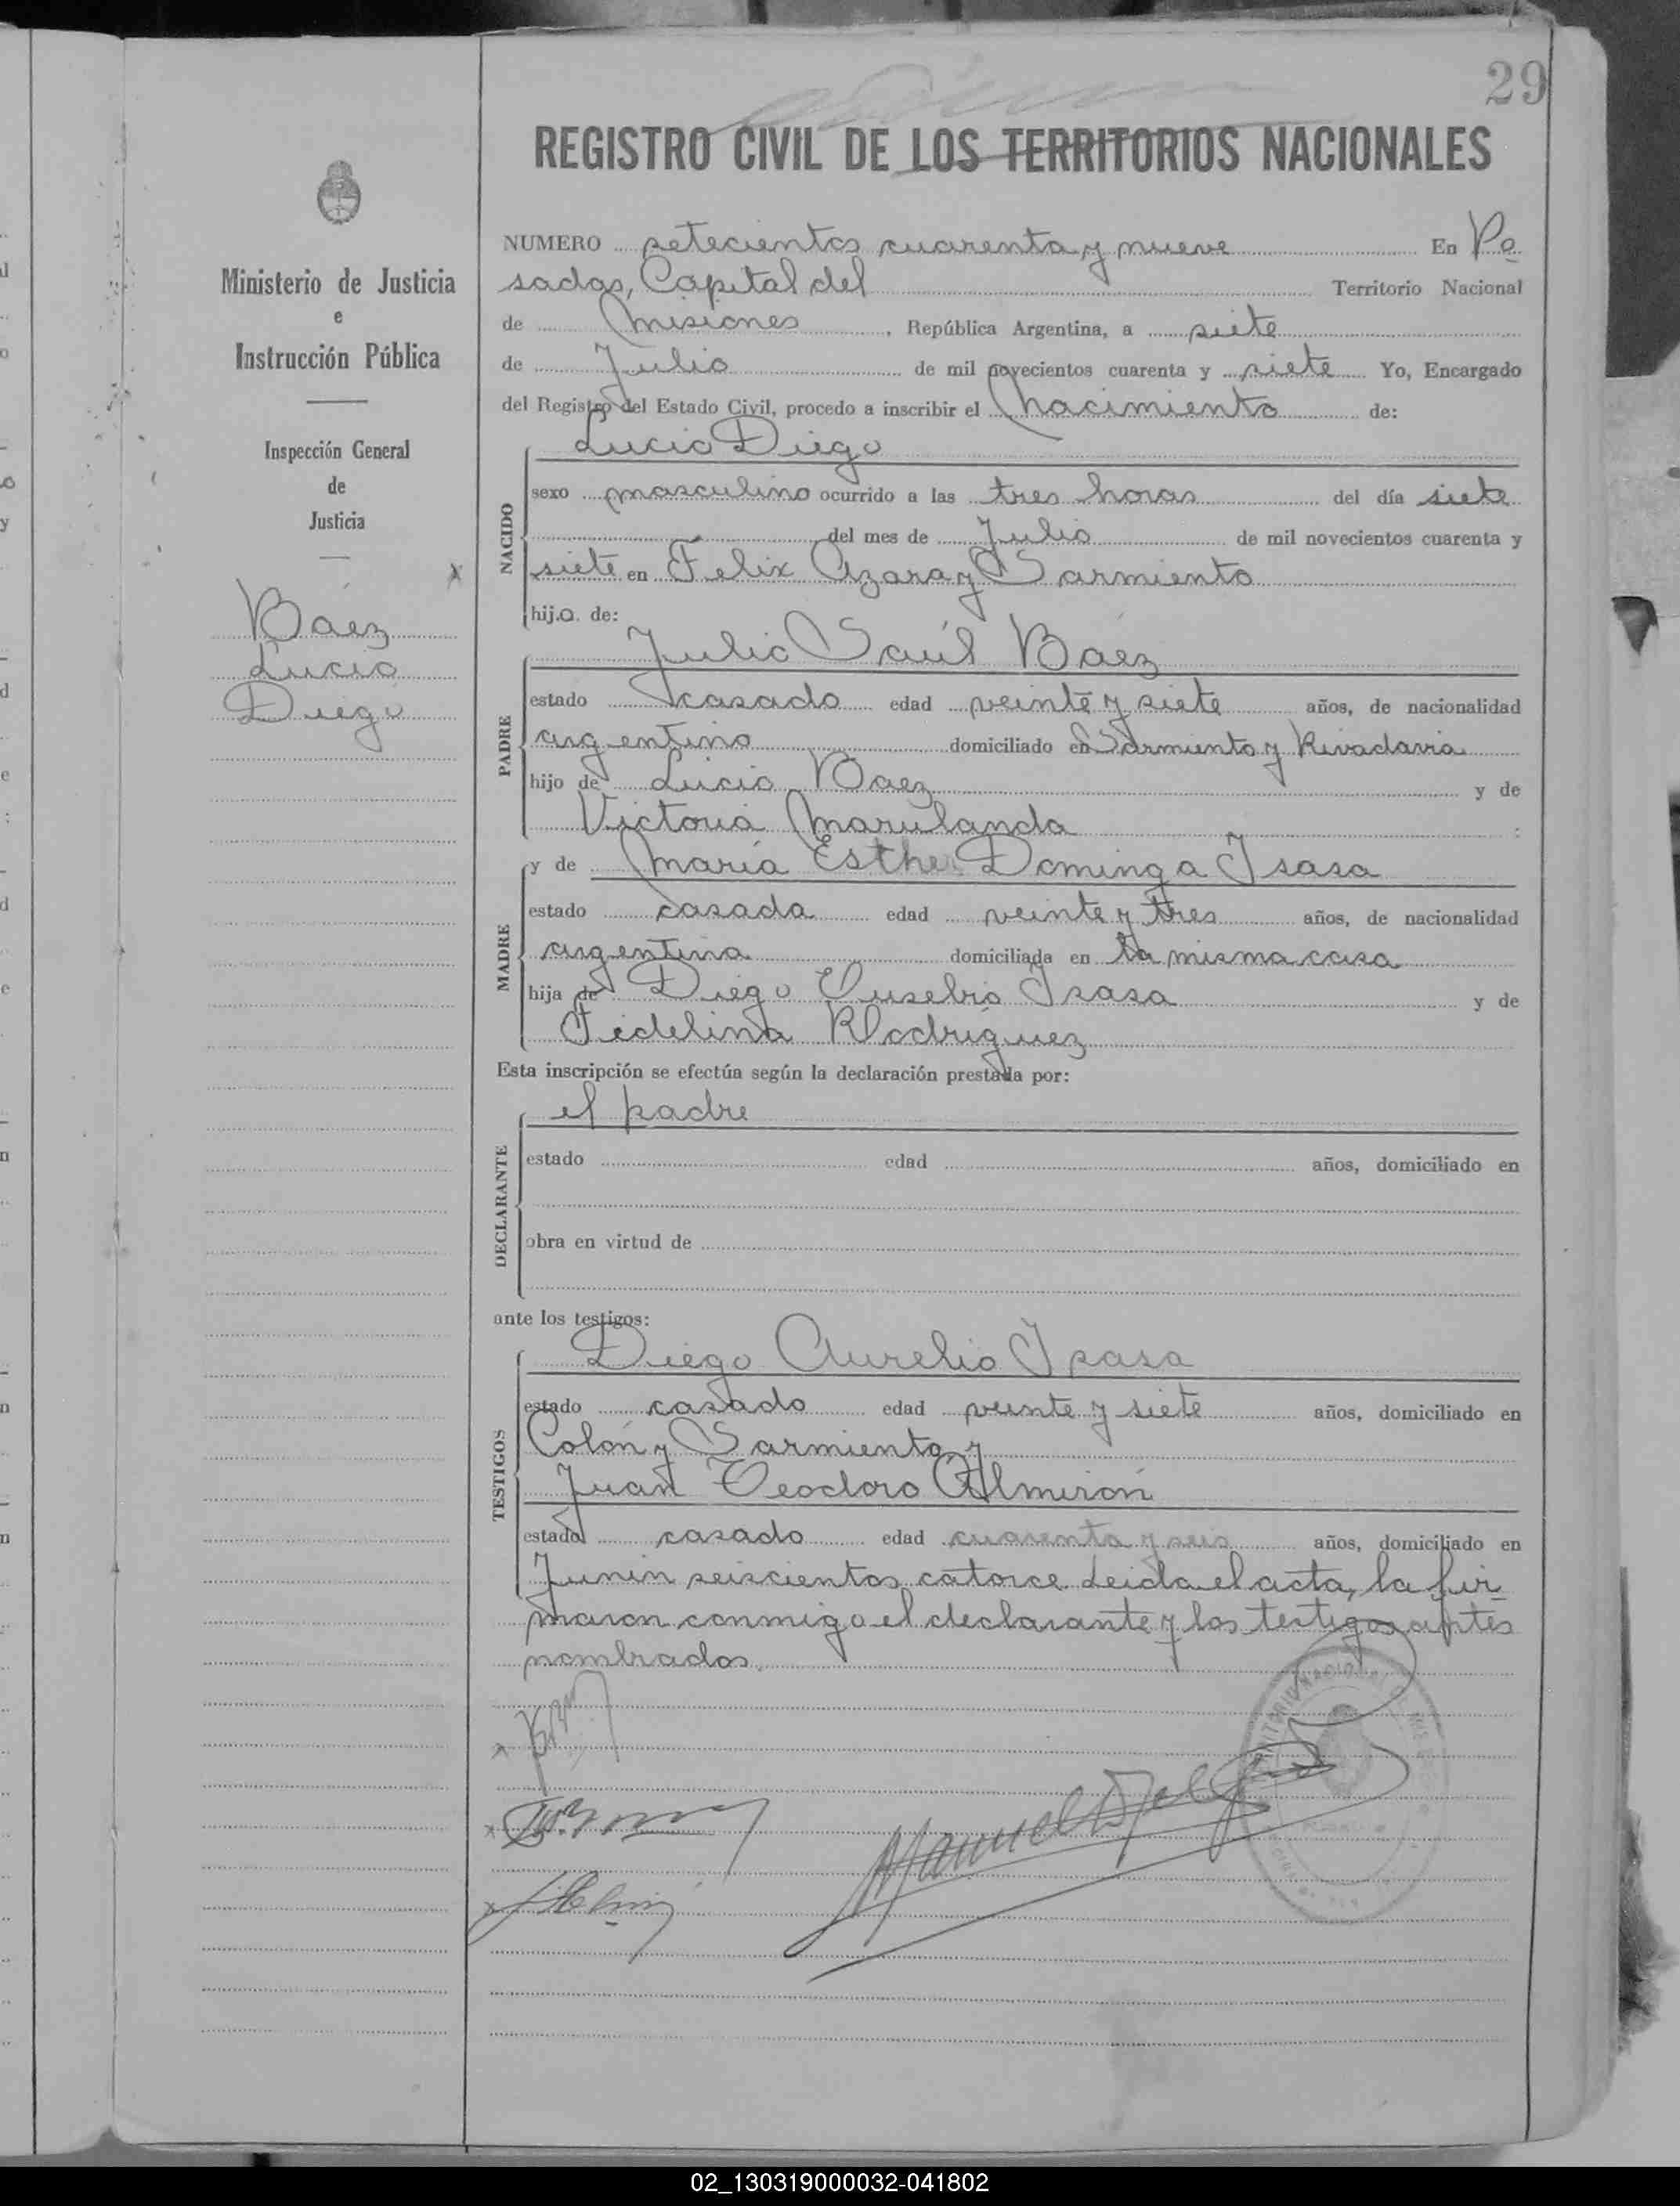 29
REGISTRO CIVIL DE LOS TERRITORIOS NACIONALES
Ministerio de Justicia
e
Instrucción Pública
Inspección General
de
Justicia
Baez
Lucio
Diego
NUMERO setecientos cuarenta y nueve En Po
sadas, Capital del Territorio Nacional
de Misiones, República Argentina, a siete
de Julio de mil novecientos cuarenta y siete Yo, Encargado
del Registro del Estado Civil, procedo a inscribir el nacimiento de:
NACIDO
Lucio Diego
sexo masculino ocurrido a las tres horas del día siete
del mes de Julio de mil novecientos cuarenta y
siete en Felix Azara y Sarmiento
hijo de:
PADRE
Julio Saúl Baez
estado casado edad veinte y siete años, de nacionalidad
argentino domiciliado en Sarmiento y Rivadavia
hijo de Lucio Baez y de
Victoria Marulanda :
MADRE
y de María Esther Dominga Isasa
estado casada edad veinte y tres años, de nacionalidad
argentina domiciliada en la misma casa
hija de Diego Eusebio Isasa y de
Fidelina Rodríguez
Esta inscripción se efectúa según la declaración prestada por:
DECLARANTE
el padre
estado edad años, domiciliado en
obra en virtud de
ante los testigos:
TESTIGOS
Diego Aurelio Isasa
estado casado edad veinte y siete años, domiciliado en
Colón y Sarmiento y
Juan Teodoro Almirón
estado casado edad cuarenta y seis años, domiciliado en
Junin seiscientos catorce. Leida el acta, la fir
maron conmigo el declarante y los testigos antes
nombrados.
02_130319000032-041802